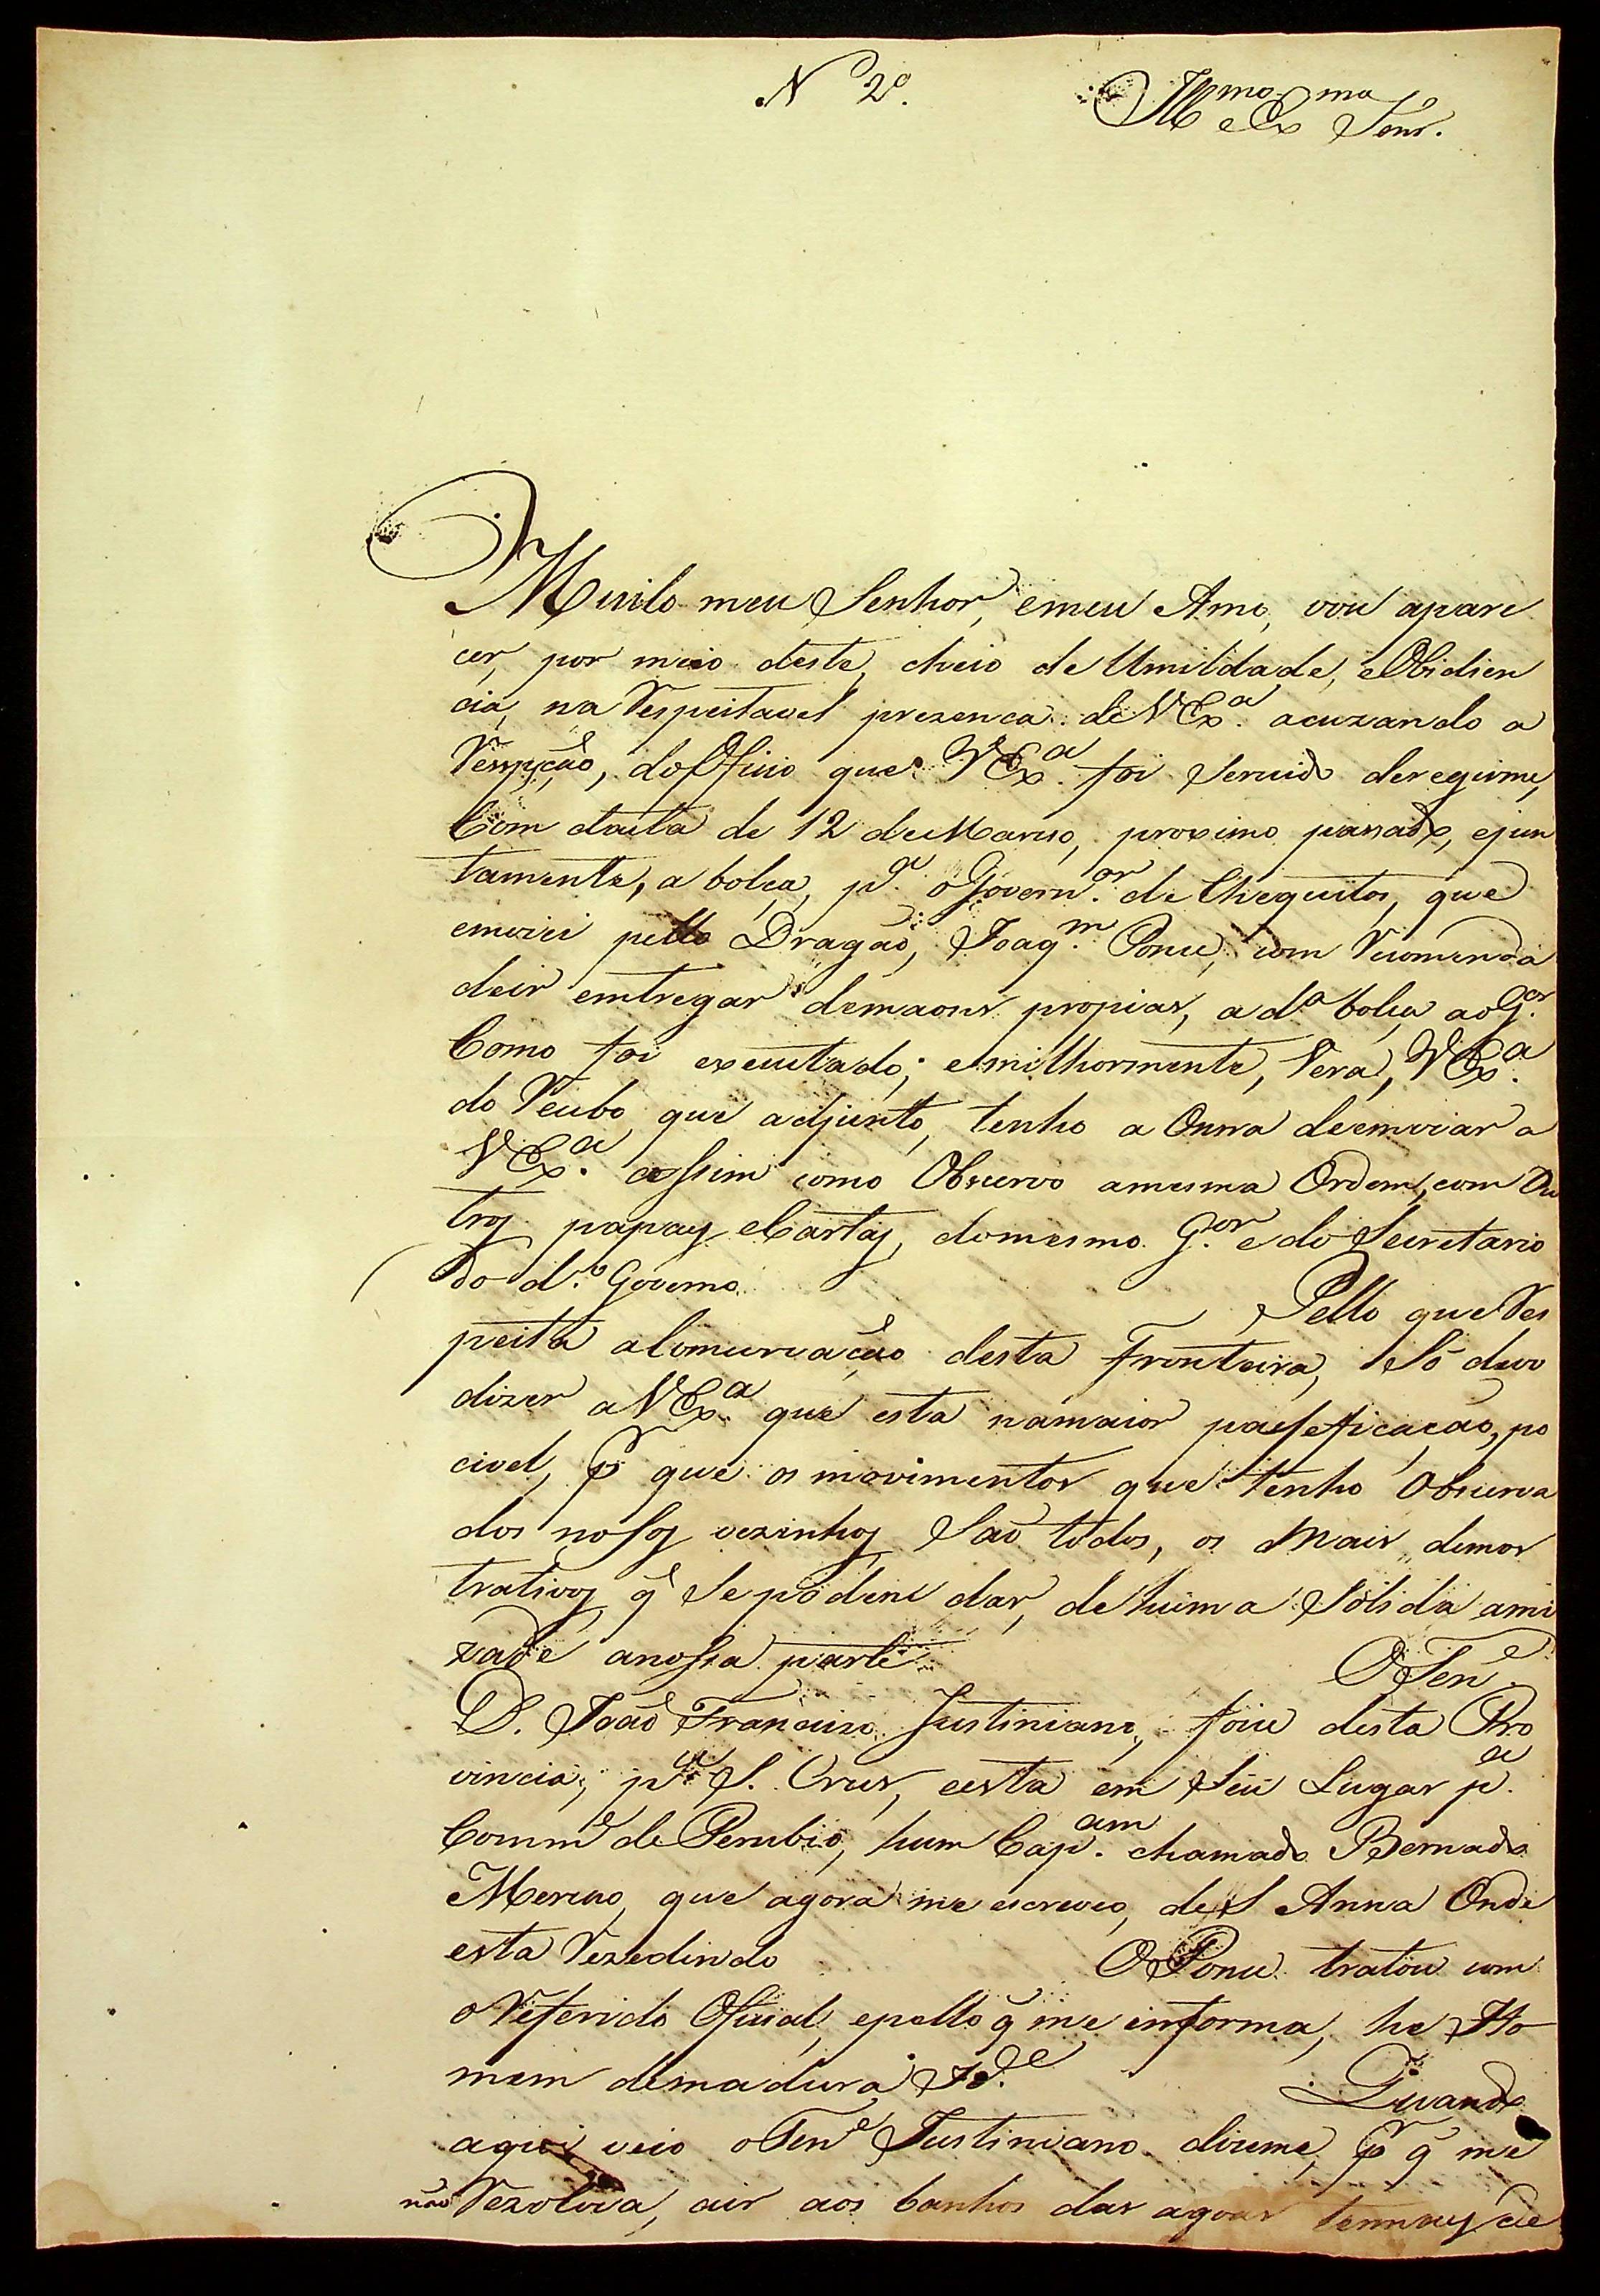 N 2º.
Illmo e Exma Senr.
Muito meu Senhor, e meu Amo, vou apare
cer, por meio deste, cheio de Umildade, e Obidien
cia, na Respeitavel prezenca de V Exa. acuzando a
Resepção, do Oficio que V Exa. foi servido deregirme,
Com data de 12 de Marso, proximo passado, e jun
tamente, a bolca, pa. o Govern.or de Chequitos, que
emviei pello Dragão, Joaqm. Ponce, com Recomenda
de ir emtregar de maons propias, a da bolca ao Gor.
Como foi executado; e milhormente, Vera, V Exa.
do Recibo que adjunto, tenho a Onrra de emviar a
V Exa. assim como Observo a mesma Ordem, com Ou
tros papays e Cartas, do mesmo G.or e do Secretario
do d.o Governo.
Pello que Res
peita a Comurvação desta Fronteira, Só devo
dizer a V Exa. que esta na maior paseficação, po
civel, pr que os movimentos que tenho Observa
dos nosos vezinhos São todos, os mais demos
trativos q̃ Se podem dar, de huma Solida ami
zade a nossa parte.
O Tene
D. João Francisco Justiniano, foice desta Pro
vincia, pa. S. Crus, e esta em Seu Lugar pa.
Comme de Perubio, hum Cap.am chamado Bernado
Merino, que agora me escreveo, de S Anna Onde
esta Rezedindo
O Ponce tratou com
o Referido Oficial, e pello q̃ me informa, he Ho
mem de madura Ide.
Quando
aqui veio o Tene Justiniano diceme, pr q̃ me
não Rezolvia, a ir aos banhos das agoas termays de